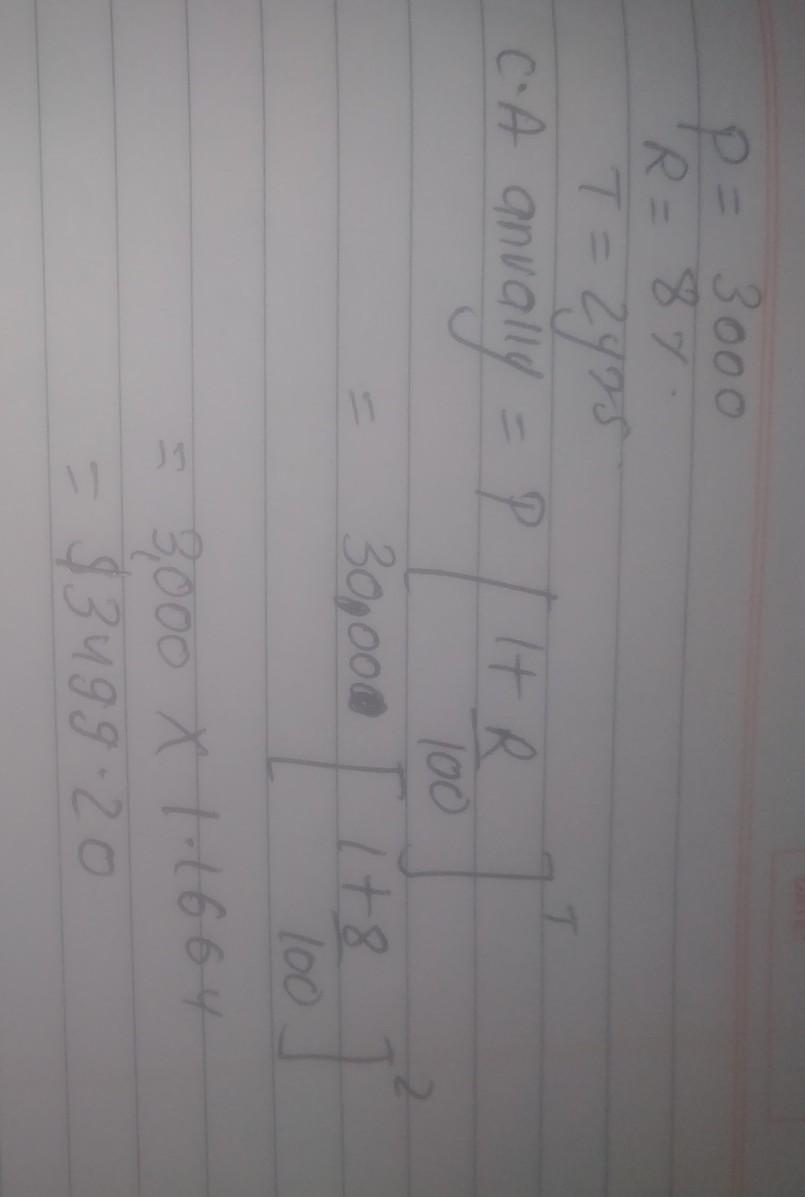 P = 3000
R = 8%.
T = 2yrs
C.A anually = P [ 1 + R/100 ]^T
= 30,000 [ 1 + 8/100 ]^2
= 3,000 X 1.1664
= $3499.20